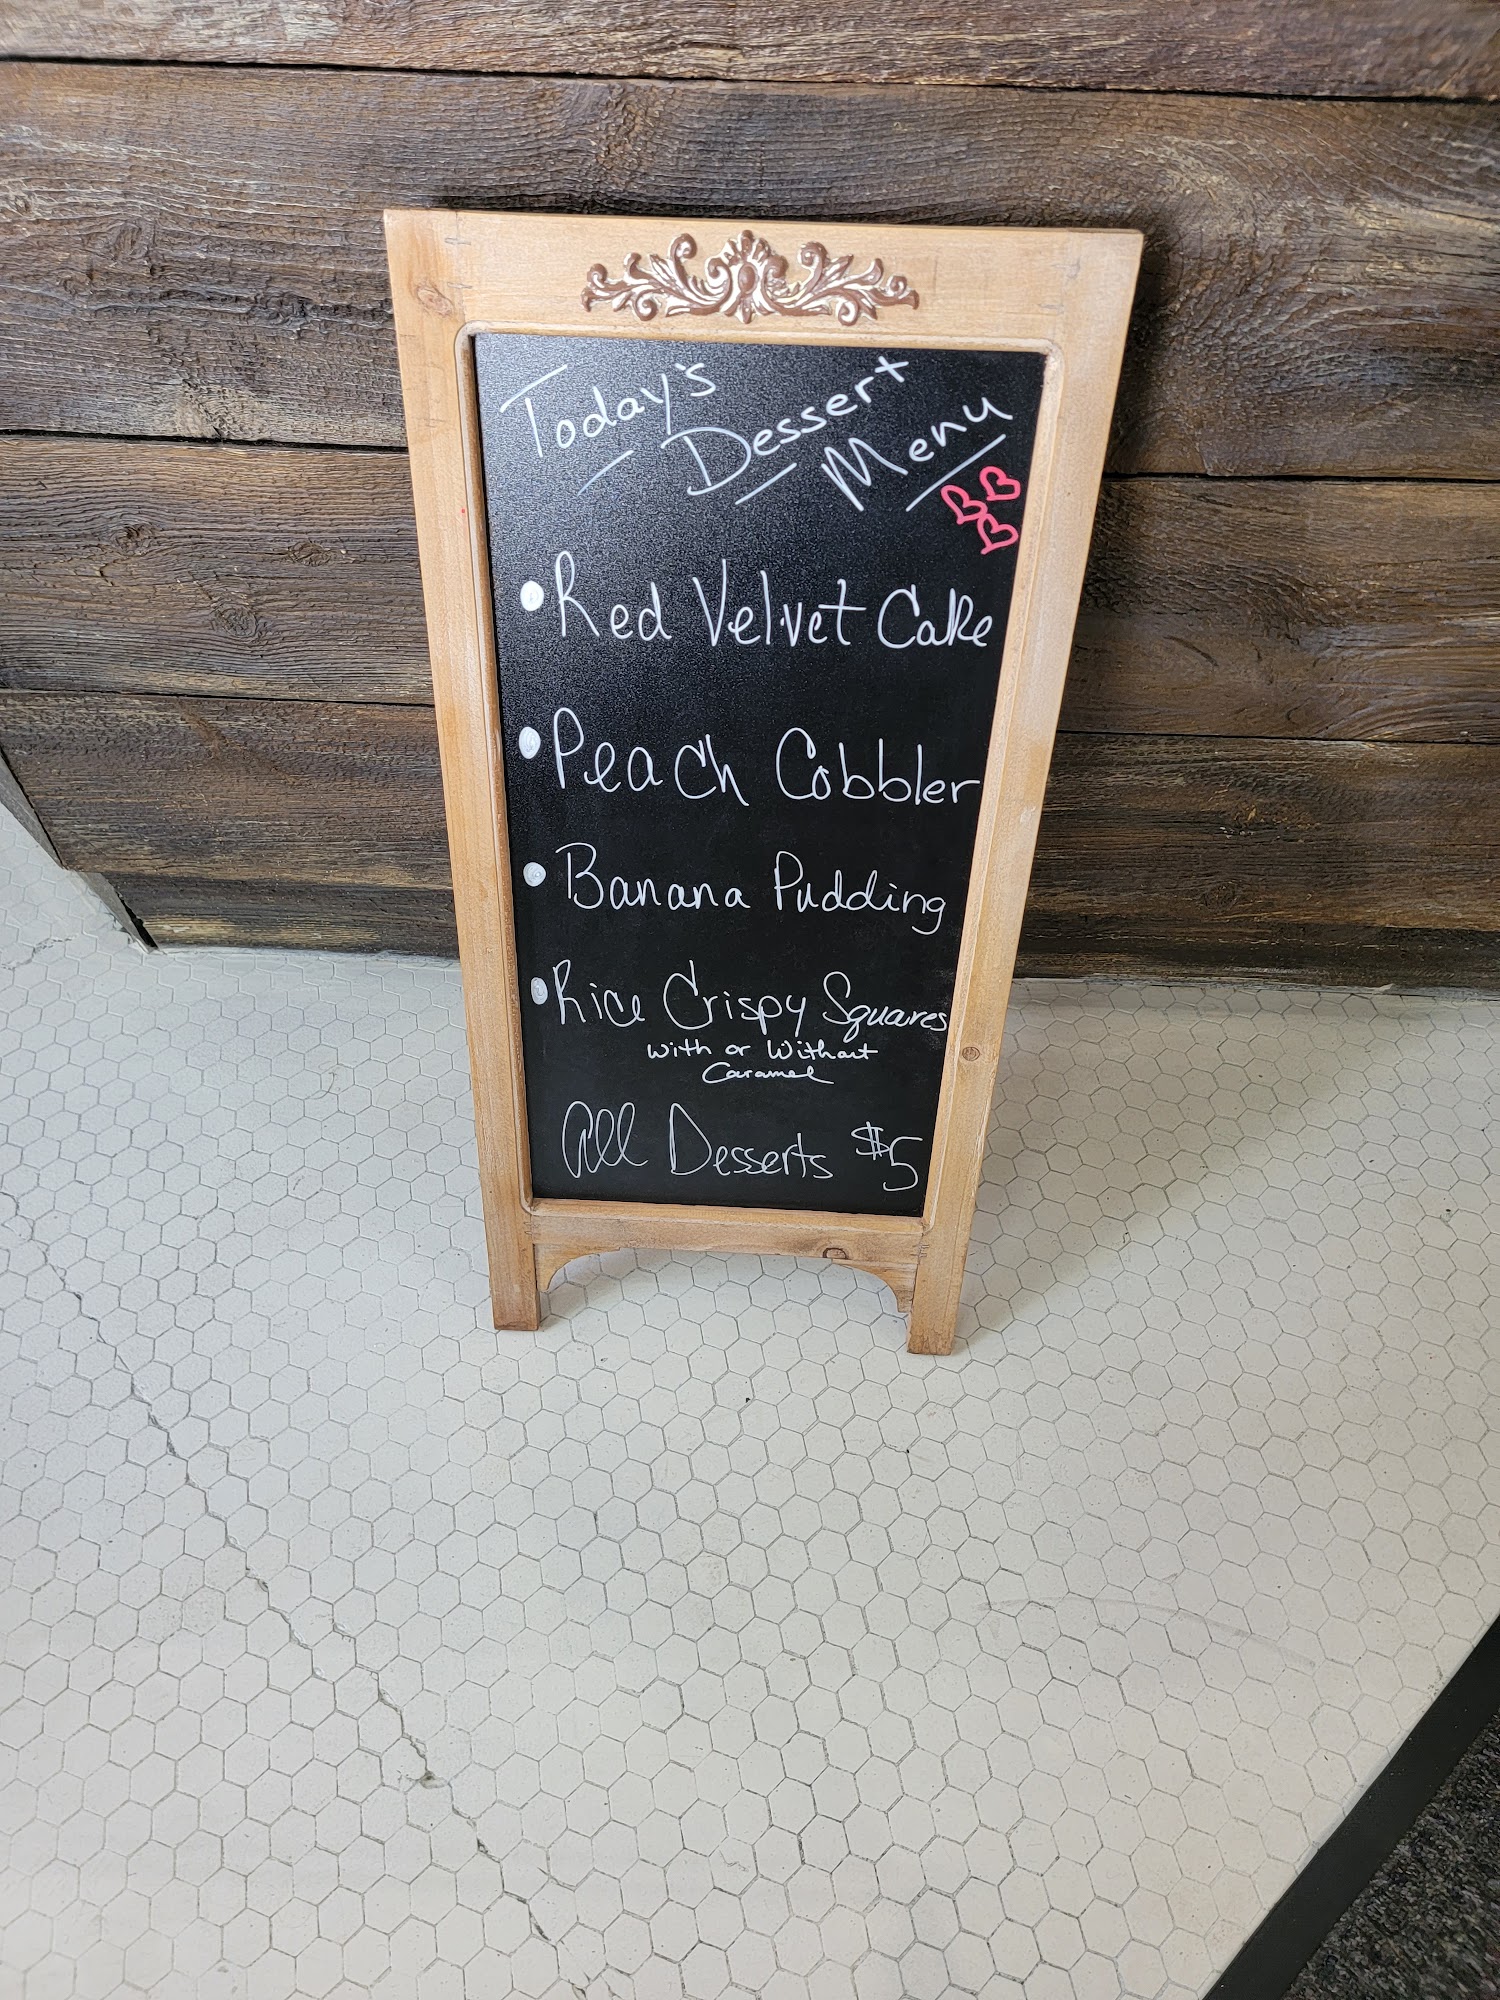 Today's Dessert Menu
• Red Velvet Cake
• Peach Cobbler
• Banana Pudding
• Rice Crispy Squares
with or without
Caramel
All Desserts $5